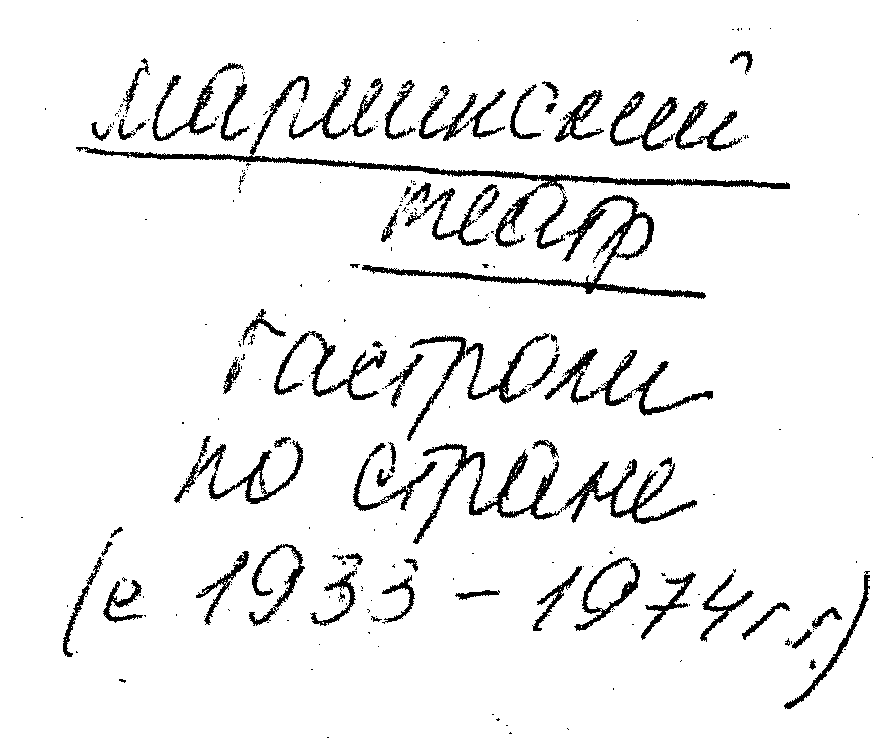 Мариинский
театр
гастроли
по стране
(с 1933 – 1974 г.г.)